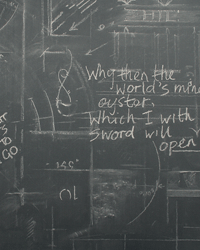 Why then the
world's mine
oyster,
Which I with
sword will
open
GO